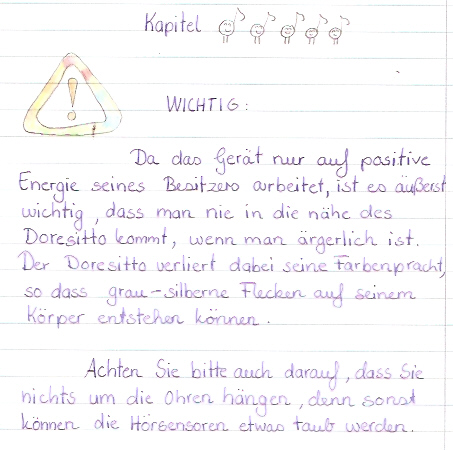 Kapitel
!
WICHTIG:
Da das Gerät nur auf positive
Energie seines Besitzers arbeitet, ist es äußerst
wichtig, dass man nie in die nähe des
Doresitto kommt, wenn man ärgerlich ist.
Der Doresitto verliert dabei seine Farbenpracht,
so dass grau-silberne Flecken auf seinem
Körper entstehen können.
Achten Sie bitte auch darauf, dass Sie
nichts um die Ohren hängen, denn sonst
können die Hörsensoren etwas taub werden.